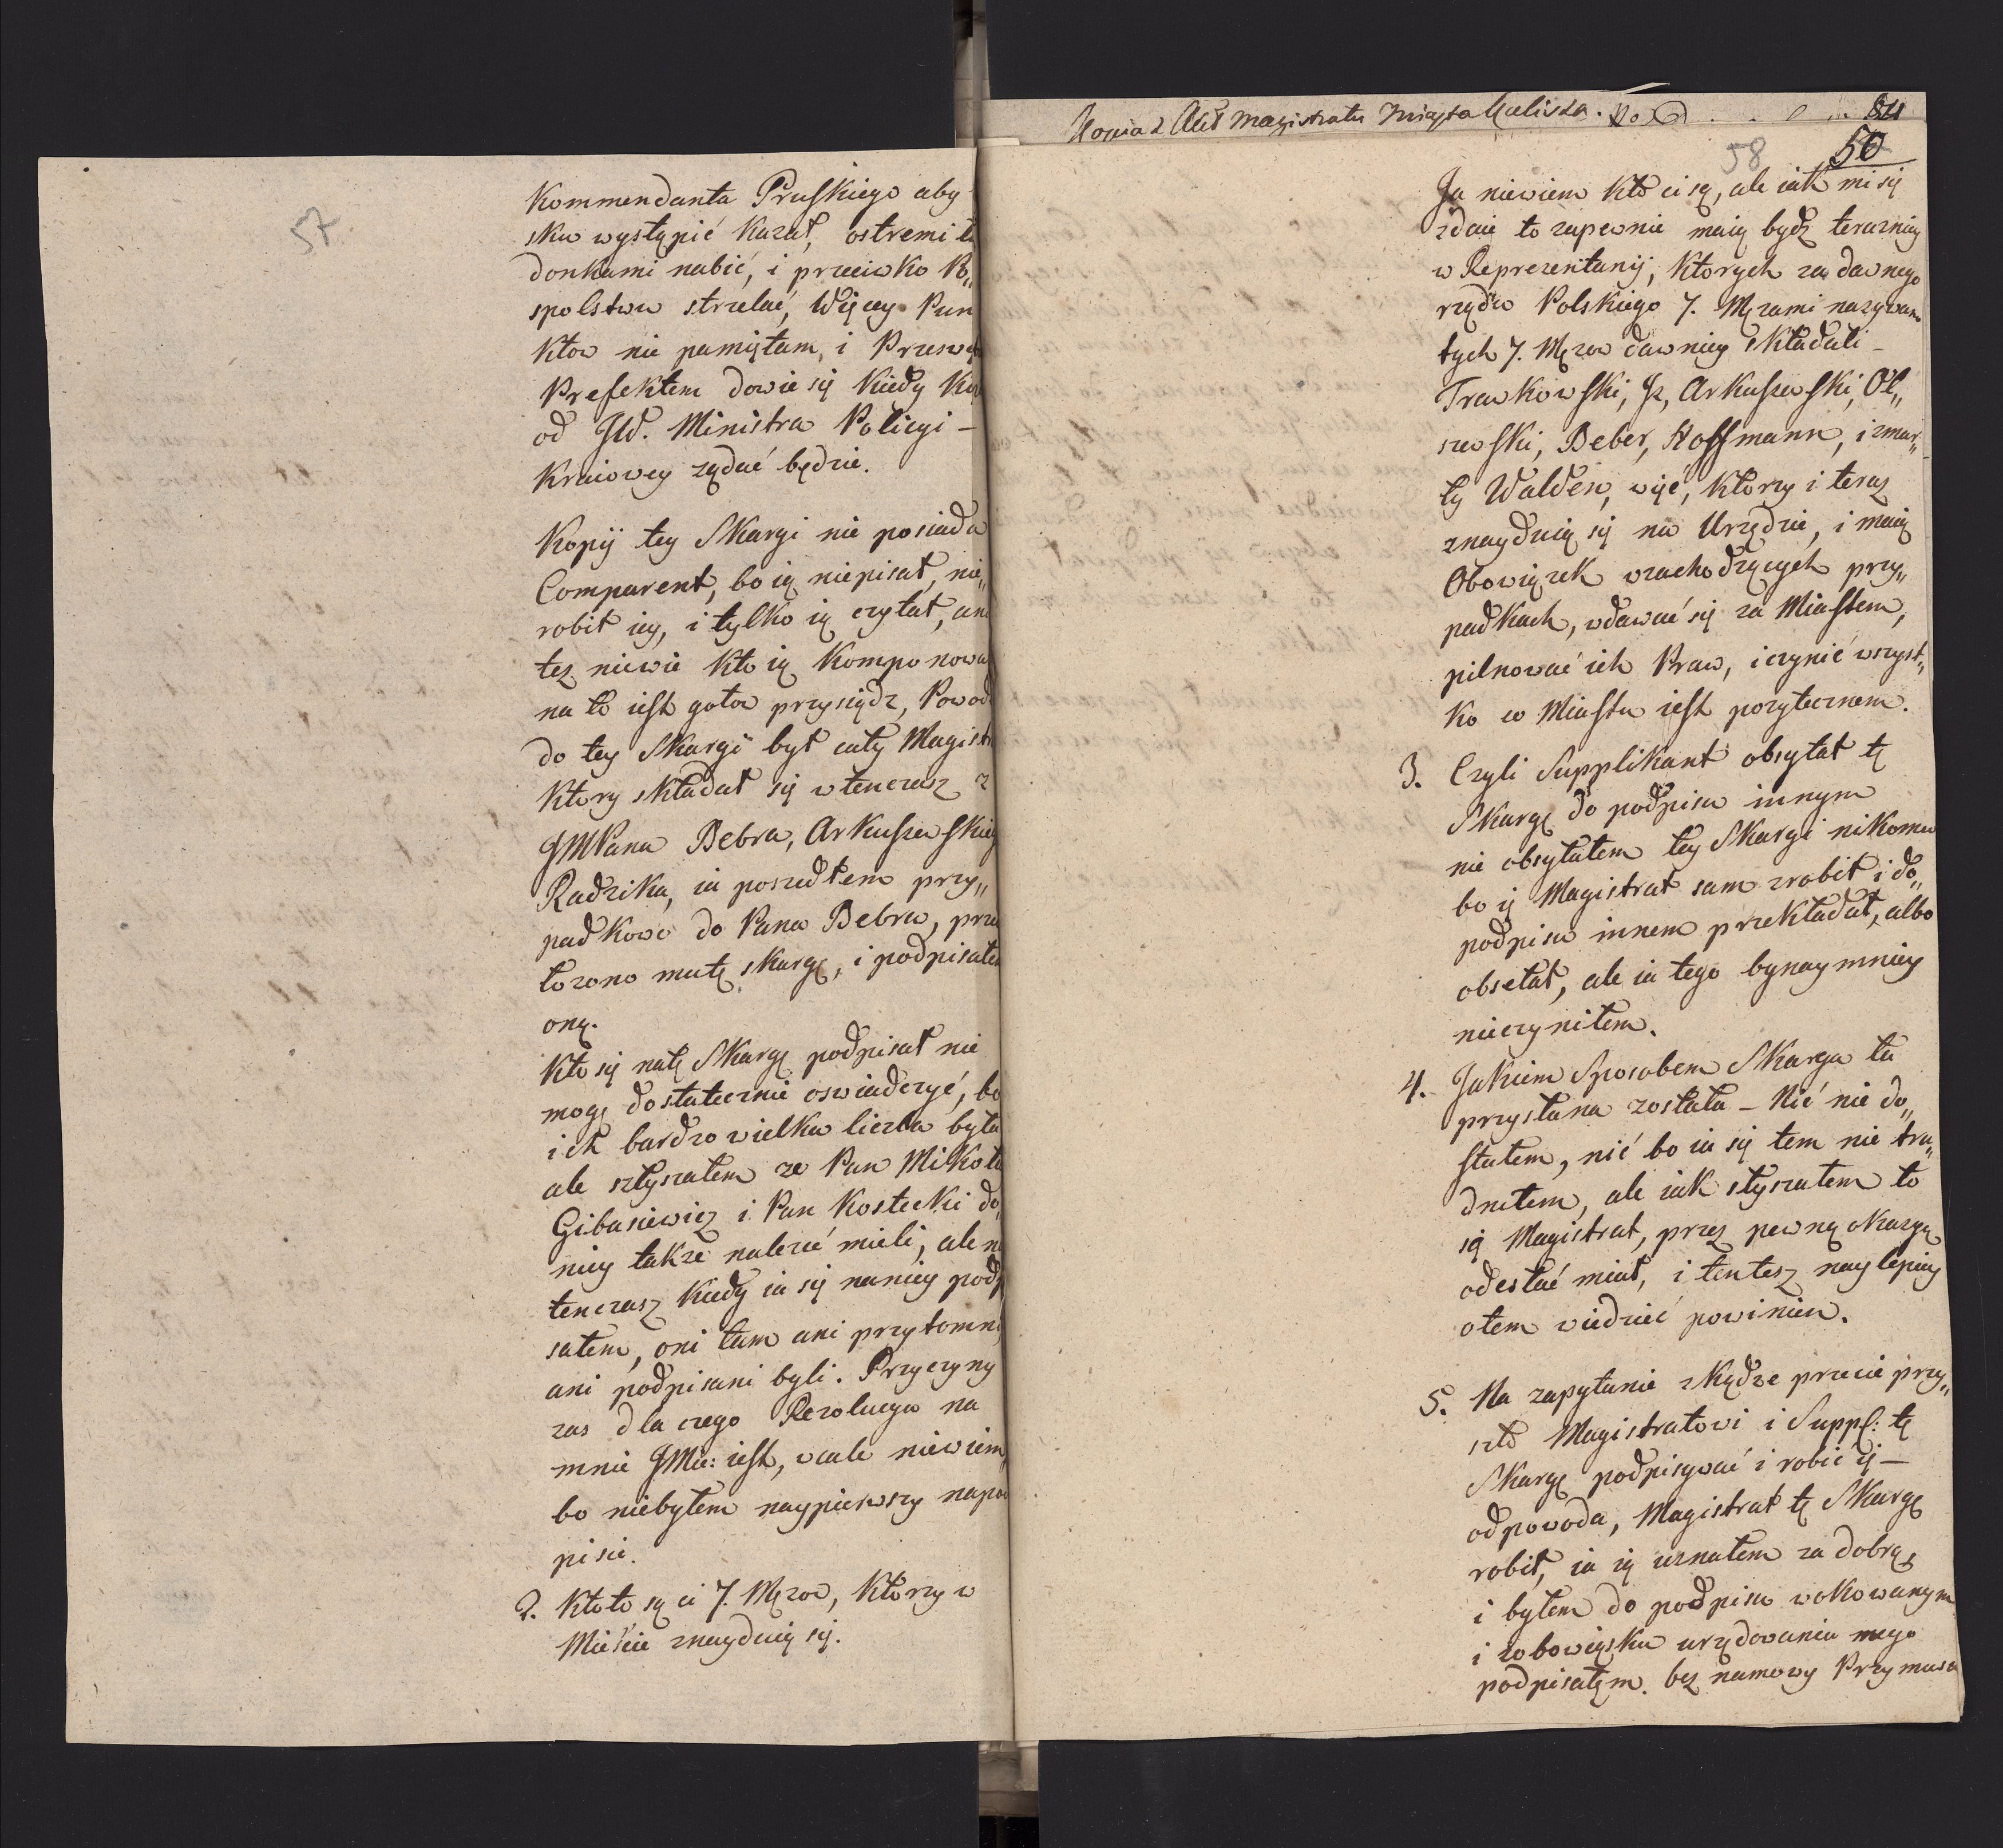 57.
Kommendanta Pruskiego aby
sku wystąpić kazał, ostremi ła
donkami nabić, i przeciwko Po„
spolstwu strzelać, Więcey Pun
któw nie pamiętam, i Przeswię
Prefektem dowie się kiedy Ko
od JW. Ministra Policyi –
Kraiowey żądać będzie.
Kopij tey Skargi nie posiada
Comparent, bo ią niepisał, nie„
robił iey, i tylko ią czytał, ani
tez niewie kto ią komponowa
na to iest gotow przysiądz, Powod
do tey Skargi był cały Magistr
ktory składał się w tenczasz z
JMPana Bebra, Arkuszewskie
Radzika, ia poszedłem przy„
padkowo do Pana Bebra, prze
łozono mu tę skargę, i podpisałem
onę.
Kto się na tę Skargę podpisał nie
mogę dostatecznie oswiadczyć, bo
ich bardzo wielka liczba była
ale słyszałem ze Pan Mikoła
Gibasiewicz i Pan Kostecki do„
niey także nalezeć mieli, ale na
tenczasz kiedy ia się na niey podp
sałem, oni tam ani przytomni
ani podpisani byli. Przyczyny
zas dla czego Rezolucya na
mnie JMie: iest, wcale niewiem,
bo niebyłem naypierwszy na pod
pisie.
2. Kto to są ci 7. Męzow, ktorzy w
Mieście znayduią się.
Kopia z Akt Magistratu Miasta Kalisza.
84
58
50
Ja niewiem kto ci są, ale iak mi się
zdaie to zapewnie maią bydz terazniey
w Reprezentanij, ktorych za dawnego
rządu Polskiego 7. Męzami nazywano
tych 7. Męzow dawniey składali –
Trawkowski, Jz, Arkuszewski, Ol„
szewski, Beber, Hoffmann, i zmar„
ły Walden, więc, ktorzy i teraz
znayduią się na Urzędzie, i maią
Obowiązek w zachodzących przy„
padkach, wdawać się za Miastem,
pilnować ich Praw, i czynić wszyst„
ko co Miastu iest pozytecznem.
3. Czyli Supplikant obsyłał tę
Skargę do podpisu innym
nie obsyłałem tey Skargi nikomu
bo ię Magistrat sam zrobił i do„
podpisu innem przekładał, albo
obsełał, ale ia tego bynaymniey
nieczyniłem.
4. Jakiem Sposobem Skarga ta
przysłana została – Nić nie do„
stałem, nić bo ia się tem nie tru„
dniłem, ale iak słyszałem to
ią Magistrat, przez pewną okazyą
odesłać miał, i ten tesz naylepiey
o tem wiedzieć powinien.
5. Na zapytanie zkądze przecie przy„
szło Magistratowi i Suppl: tę
Skargę podpisywać i robić ię –
odpowoda, Magistrat tę Skargę
robił, ia ią uznałem za dobrą,
i byłem do podpisu wokowanym
i z obowiązku urzędowania mego
podpisałęm. bez namowy Przymusu